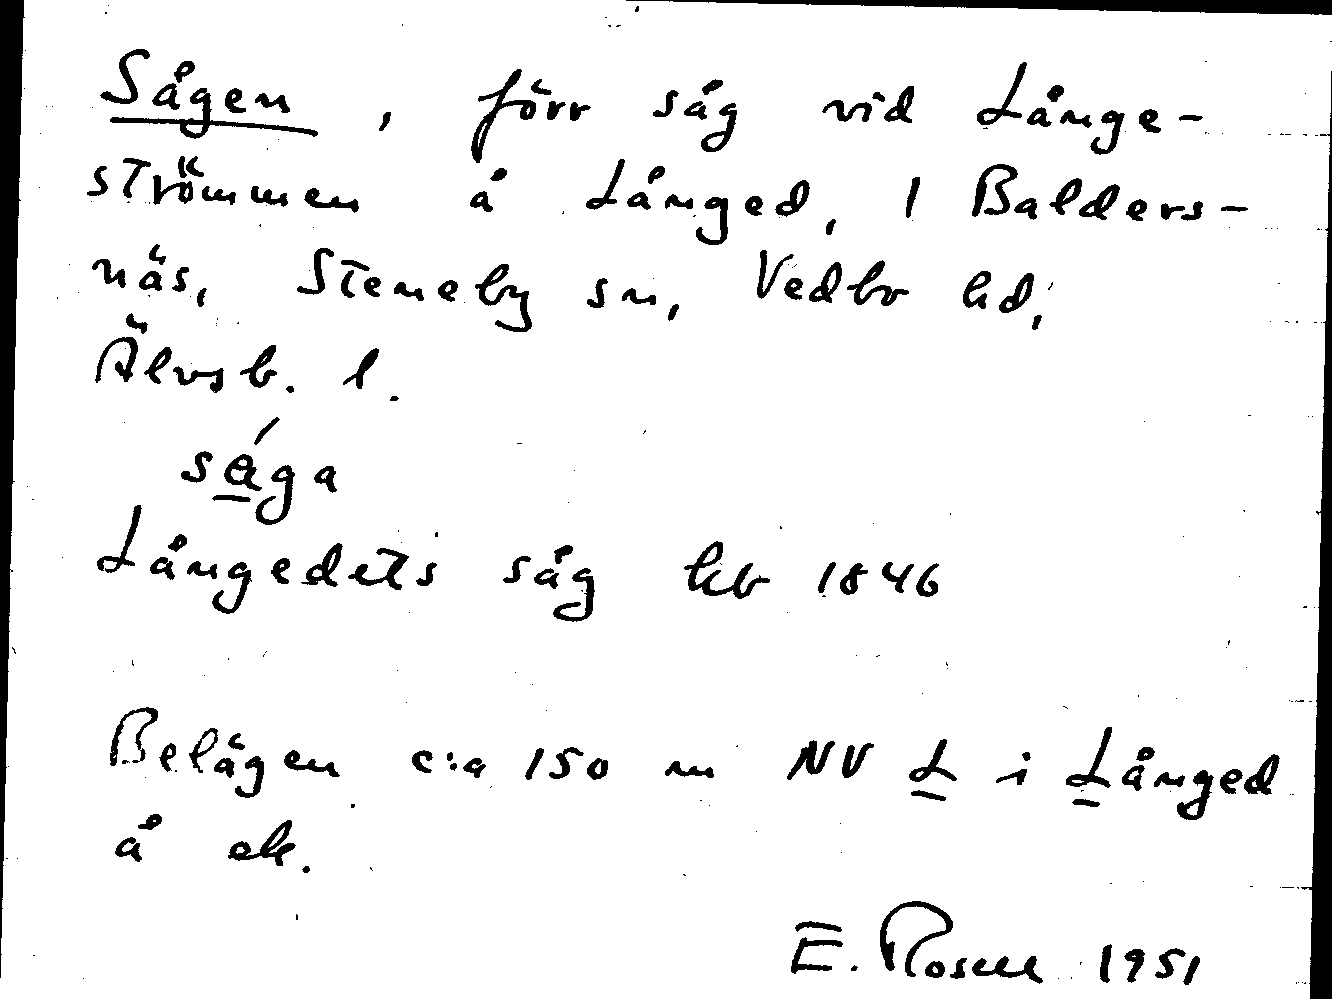 Sågen, förr såg vid Långe-
strömmen å Långed, 1 Balders-
näs, Steneby sn, Vedbo hd,
Älvsb. l.
såga
Långedets såg hb 1846
Belägen c:a 150 m NV L i Långed
å ek.
E. Rosell 1951